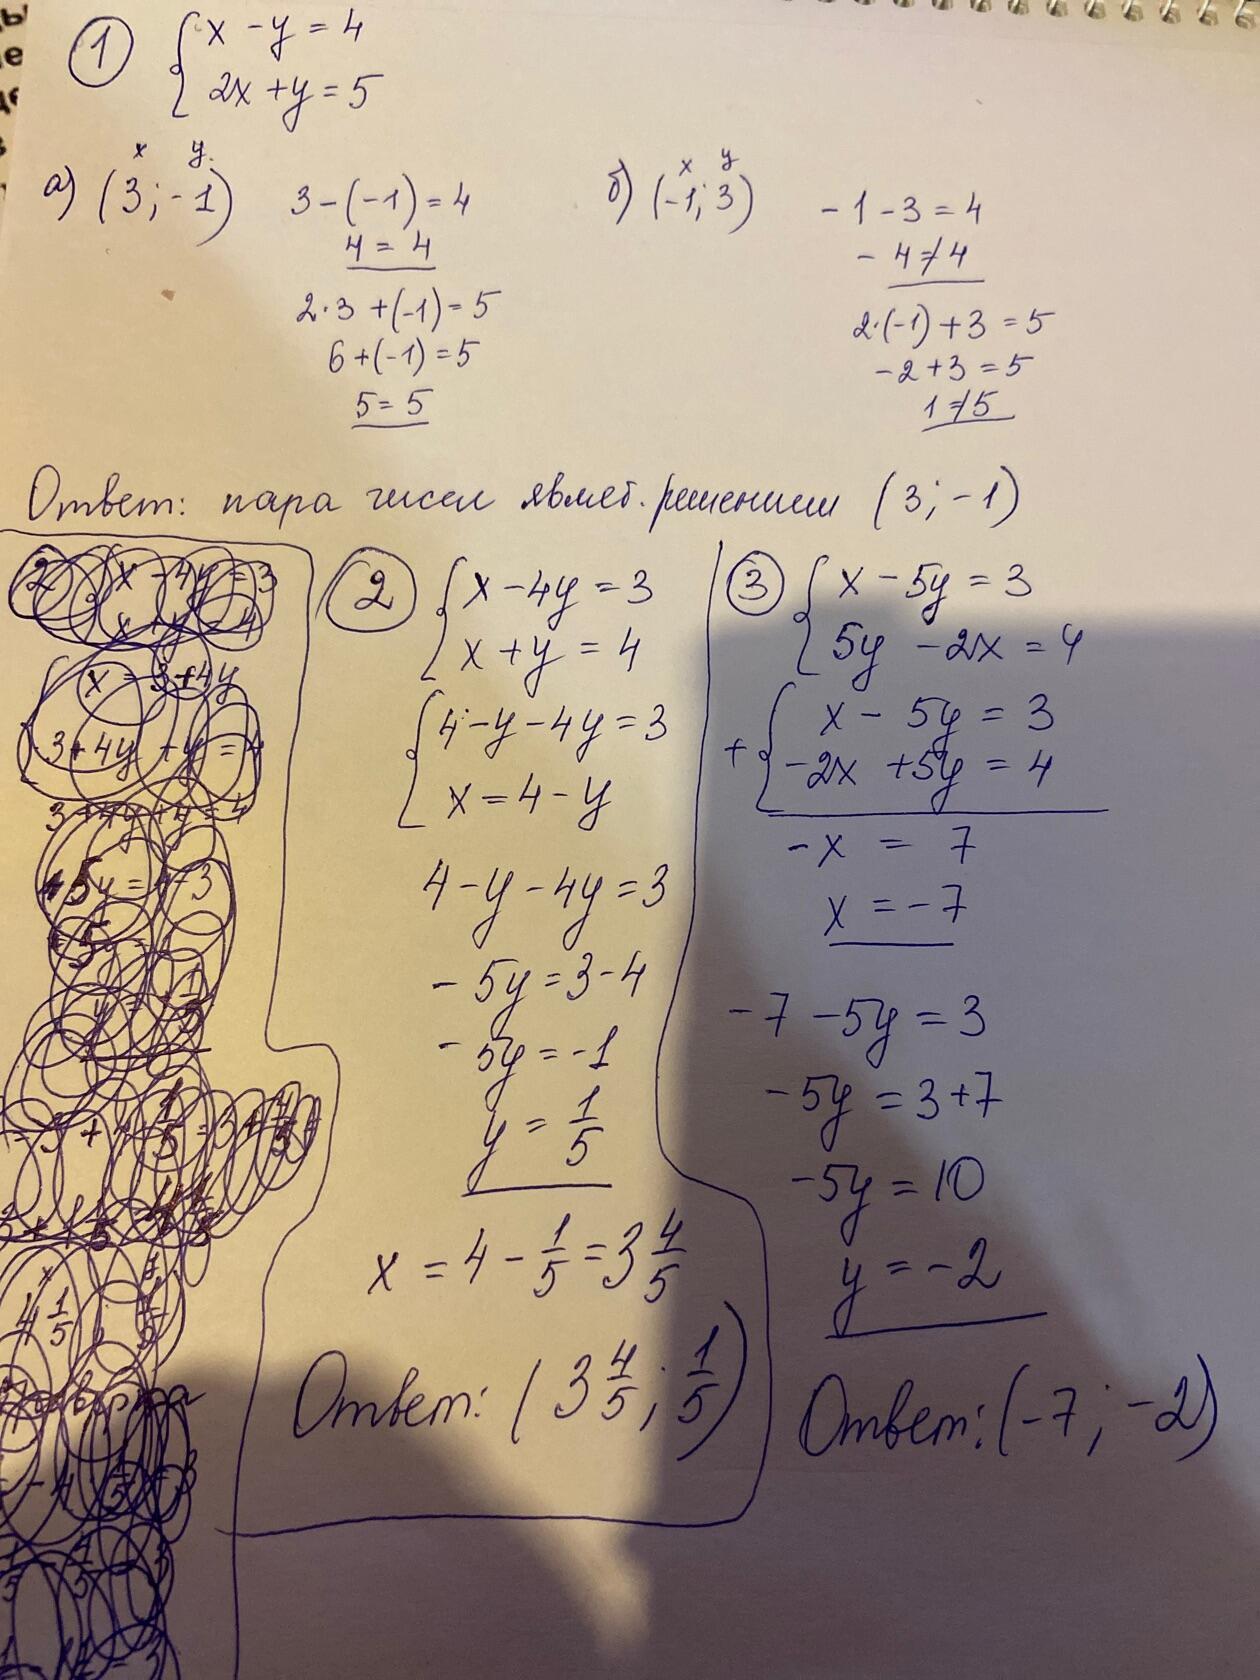 ① { x - y = 4
2x + y = 5
x y
а) (3; -1)
3 - (-1) = 4
4 = 4
2·3 + (-1) = 5
6 + (-1) = 5
5 = 5
x y
б) (-1; 3)
-1 - 3 = 4
-4 ≠ 4
2·(-1) + 3 = 5
-2 + 3 = 5
1 ≠ 5
Ответ: пара чисел являет. решением (3; -1)
② x - 4y = 3
x + y = 4
x = 3 + 4y
3 + 4y + y = 4
3 + 4y + y = 4
② { x - 4y = 3
x + y = 4
{ 4 - y - 4y = 3
x = 4 - y
4 - y - 4y = 3
- 5y = 3 - 4
- 5y = -1
y = 1/5
x = 4 - 1/5 = 3 4/5
Ответ: (3 4/5; 1/5)
③ { x - 5y = 3
5y - 2x = 4
+ { x - 5y = 3
-2x + 5y = 4
-x = 7
x = -7
-7 - 5y = 3
-5y = 3 + 7
-5y = 10
y = -2
Ответ: (-7; -2)